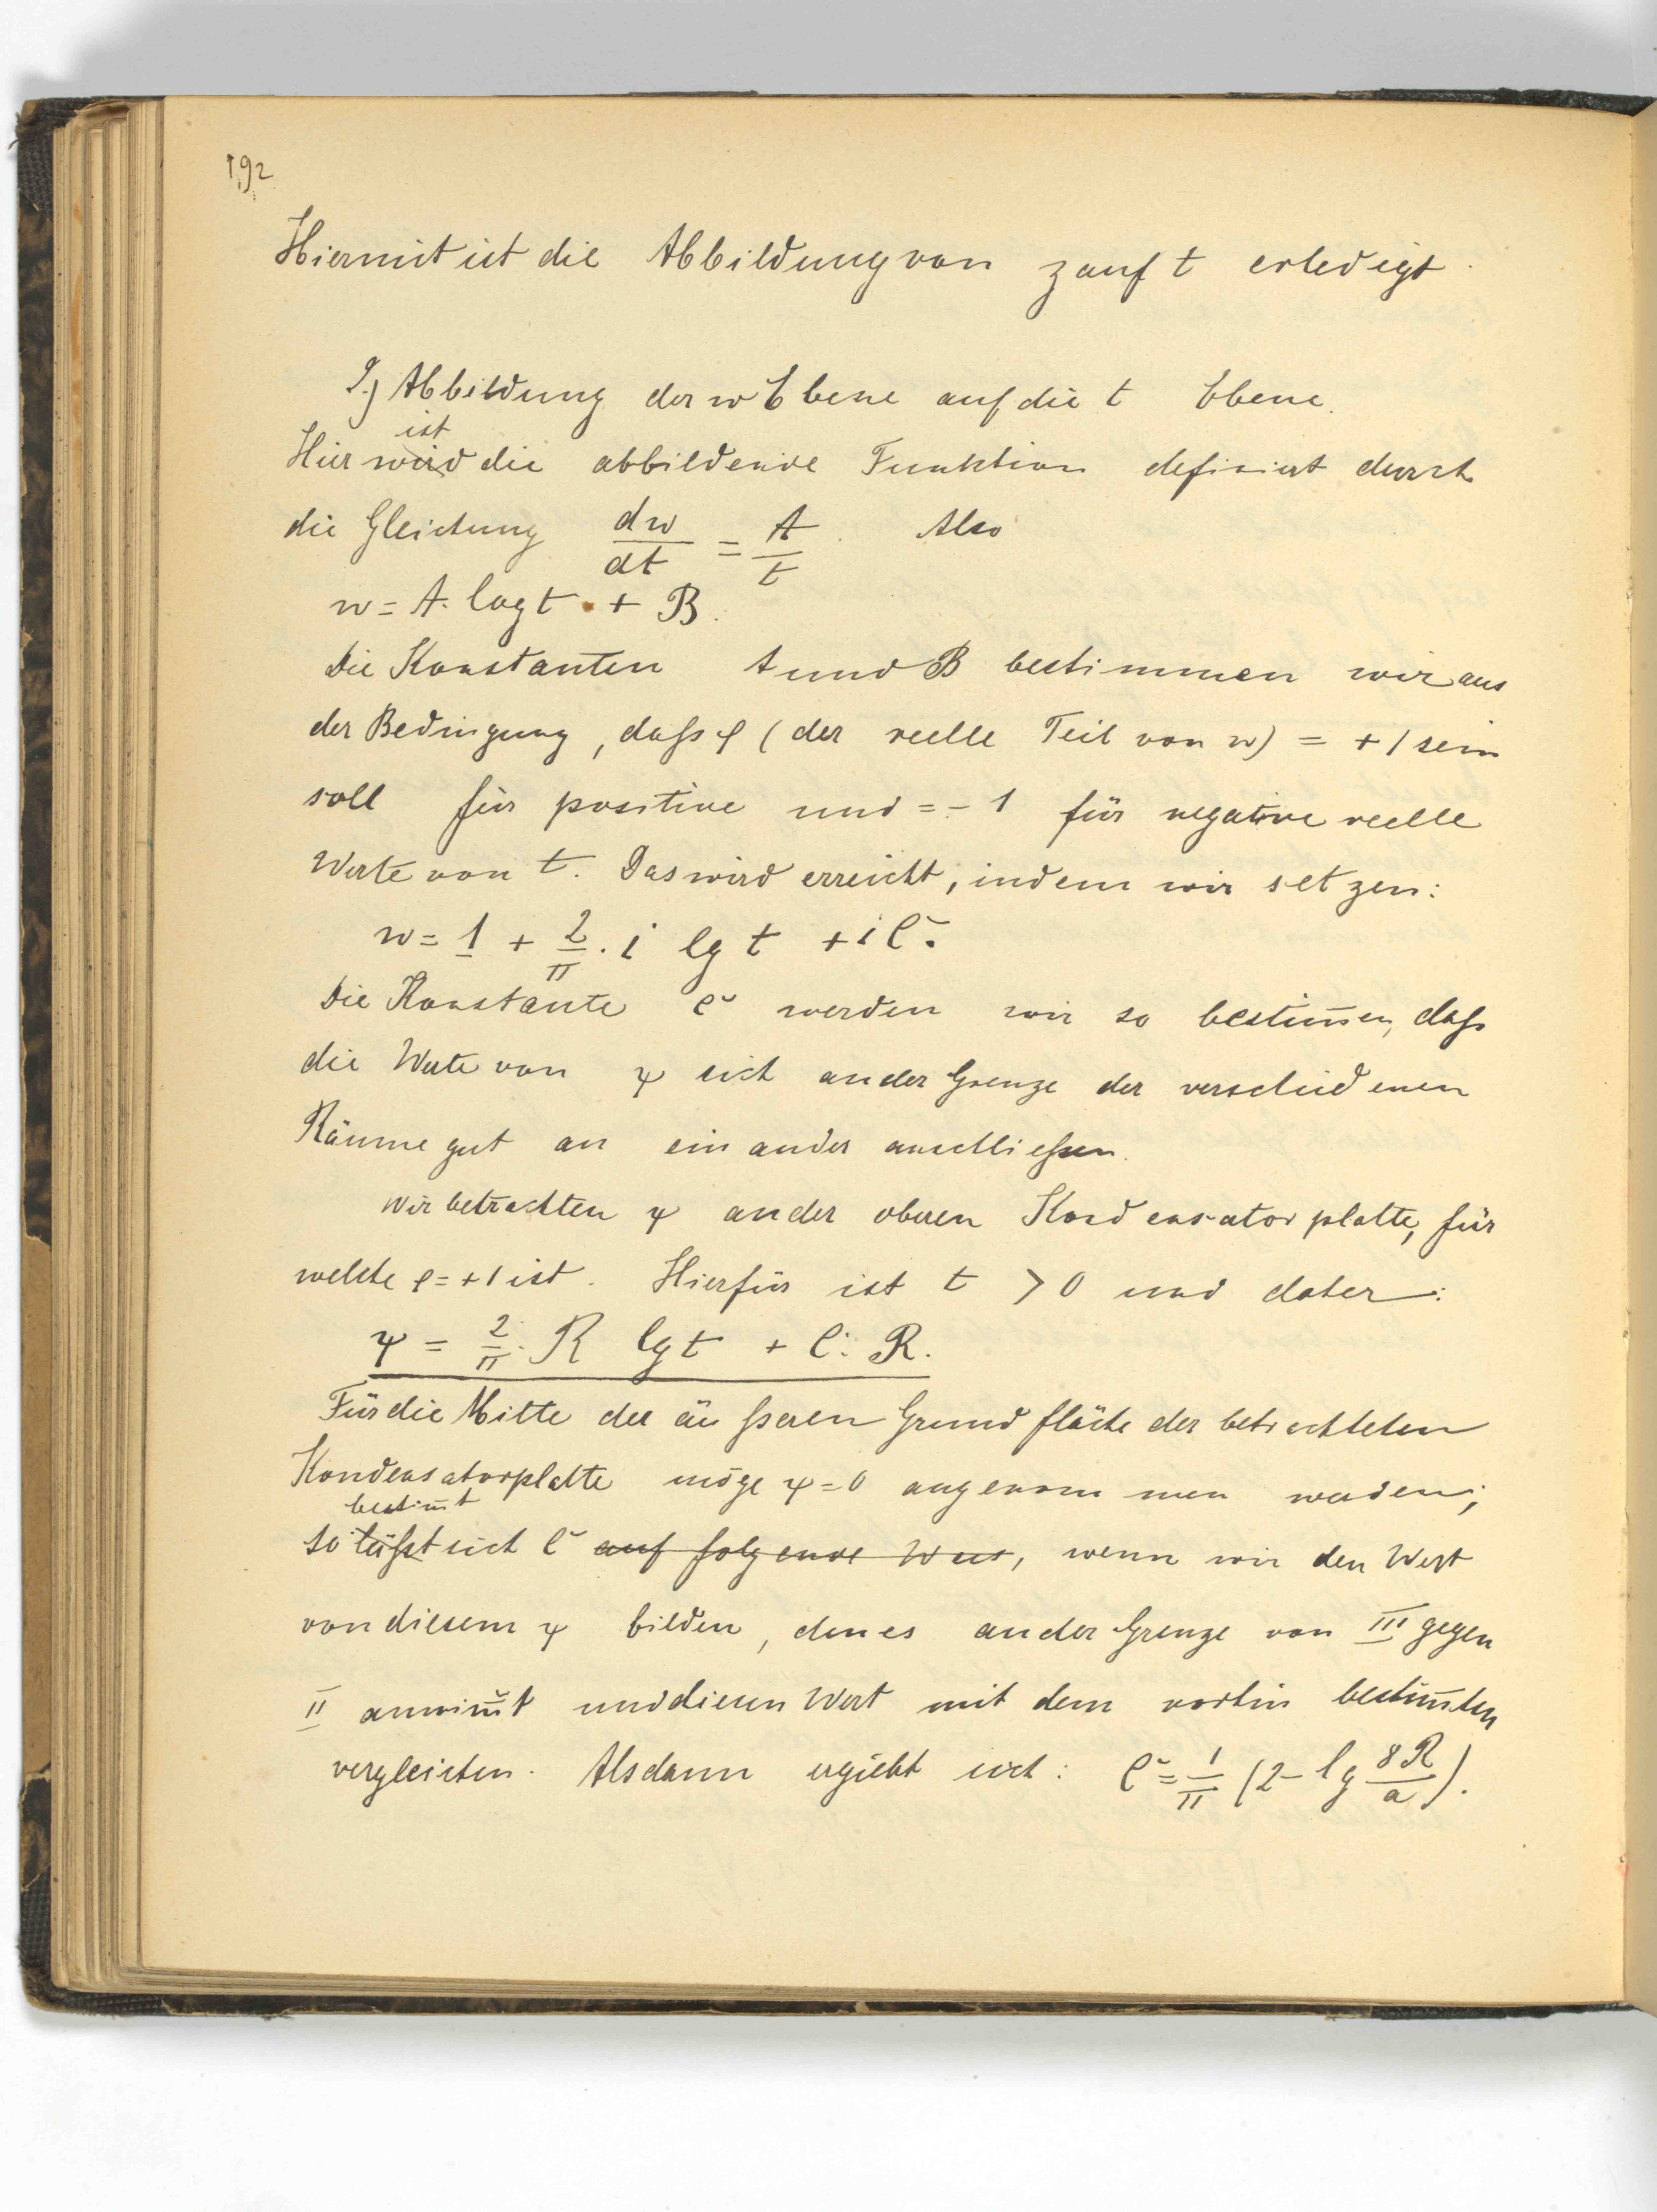 192
Hiermit ist die Abbildung von z auf t erledigt.
2.) Abbildung der w Ebene auf die t Ebene.
ist
Hier wird die abbildende Funktion definiert durch
die Gleichung dw/dt = A/t. Also
w = A. log t + B.
Die Konstanten A und B bestimmen wir aus
der Bedingung, daſs φ (der reelle Teil von w) = +1 sein
soll für positive und = -1 für negative reelle
Werte von t. Das wird erreicht, indem wir setzen:
w = 1 + 2/π . i lg t + i C.
Die Konstante C werden wir so bestim̄en, daſs
die Werte von ψ sich an der Grenze der verschiedenen
Räume gut an einander anschlieſsen.
Wir betrachten ψ an der oberen Kondensatorplatte, für
welche φ = +1 ist. Hierfür ist t > 0 und daher:
ψ = 2/π . R lg t + C . R.
Für die Mitte der äuſseren Grundfläche der betrachteten
Kondensatorplatte möge ψ = 0 angenommen werden;
bestim̄t
so läſst sich C auf folgende Weis, wenn wir den Wert
von diesem ψ bilden, den es an der Grenze von III gegen
II annim̄t und diesen Wert mit dem vorhin bestim̄ten
vergleichen. Alsdann ergiebt sich: C = 1/π (2 - lg 8R/a).